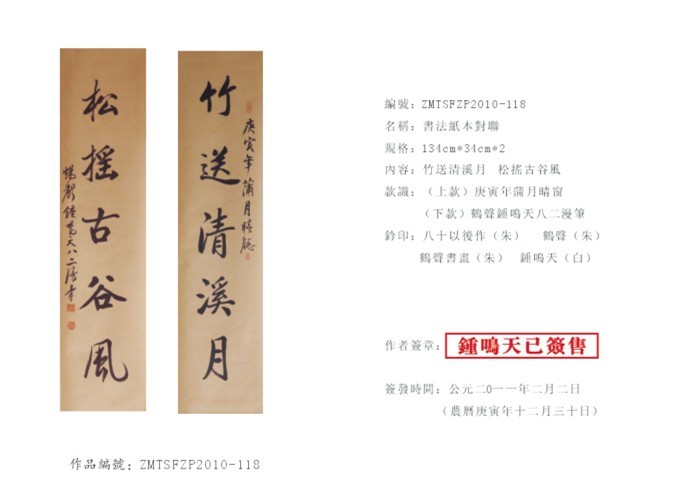 竹送清溪月
庚寅年蒲月晴窗
松摇古谷風
鶴聲鍾鳴天八二漫筆
編號：ZMTSFZP2010-118
名稱：書法紙本對聯
規格：134cm*34cm*2
內容：竹送清溪月 松搖古谷風
款識：（上款）庚寅年蒲月晴窗
（下款）鶴聲鍾鳴天八二漫筆
鈐印：八十以後作（朱） 鶴聲（朱）
鶴聲書畫（朱） 鍾鳴天（白）
作者簽章：鍾鳴天已簽售
簽發時間：公元二0一一年二月二日
（農曆庚寅年十二月三十日）
作品編號：ZMTSFZP2010-118